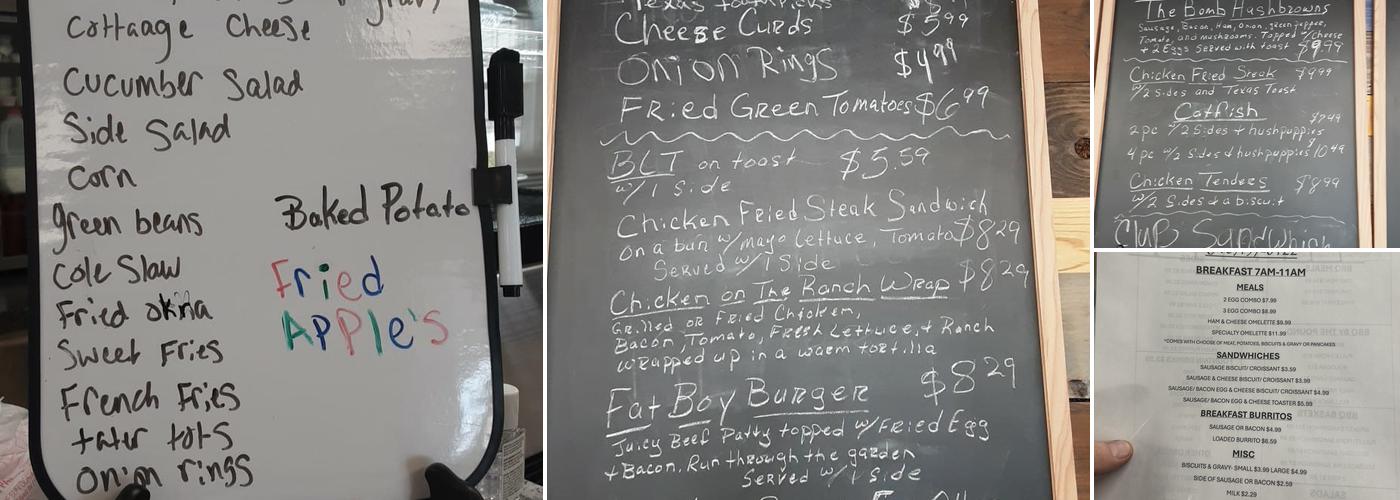 Cottaage Cheese
Cucumber Salad
Side Salad
Corn
green beans
Cole Slaw
Fried okra
Sweet Fries
French Fries
tater tots
onion rings
Baked Potato
Fried
APPle's
Cheese Curds $5.99
Onion Rings $4.99
Fried Green Tomatoes $6.99
BLT on toast $5.59
w/1 Side
Chicken Fried Steak Sandwich
on a bun w/mayo Lettuce, Tomato $8.29
Served w/1 Side
Chicken on The Ranch Wrap $8.29
Grilled or Fried Chicken,
Bacon, Tomato, Fresh Lettuce, + Ranch
wrapped up in a warm tortilla
Fat Boy Burger $8.29
Juicy Beef Patty topped w/Fried Egg
+ Bacon, Run through the garden
Served w/1 Side
The Bomb Hashbrowns
Sausage, Bacon, Ham, Onion, green pepper,
Tomato, and mushrooms. Topped w/cheese
+ 2 Eggs Served with toast $9.99
Chicken Fried Steak $9.99
w/2 Sides and Texas Toast
Catfish
2 pc w/2 Sides + hushpuppies $7.49
4 pc w/2 Sides + hushpuppies $10.49
Chicken Tenders $8.99
w/2 Sides + a biscuit
Club Sandwhich
BREAKFAST 7AM-11AM
MEALS
2 EGG COMBO $7.99
3 EGG COMBO $8.99
HAM & CHEESE OMELETTE $9.99
SPECIALTY OMELETTE $11.99
*COMES WITH CHOICE OF MEAT, POTATOES, BISCUITS & GRAVY OR PANCAKES
SANDWHICHES
SAUSAGE BISCUIT/ CROISSANT $3.59
SAUSAGE & CHEESE BISCUIT/ CROISSANT $3.99
SAUSAGE/ BACON EGG & CHEESE BISCUIT/ CROISSANT $4.99
SAUSAGE/ BACON EGG & CHEESE TOASTER $5.99
BREAKFAST BURRITOS
SAUSAGE OR BACON $4.99
LOADED BURRITO $6.59
MISC
BISCUITS & GRAVY- SMALL $3.99 LARGE $4.99
SIDE OF SAUSAGE OR BACON $2.59
MILK $2.29